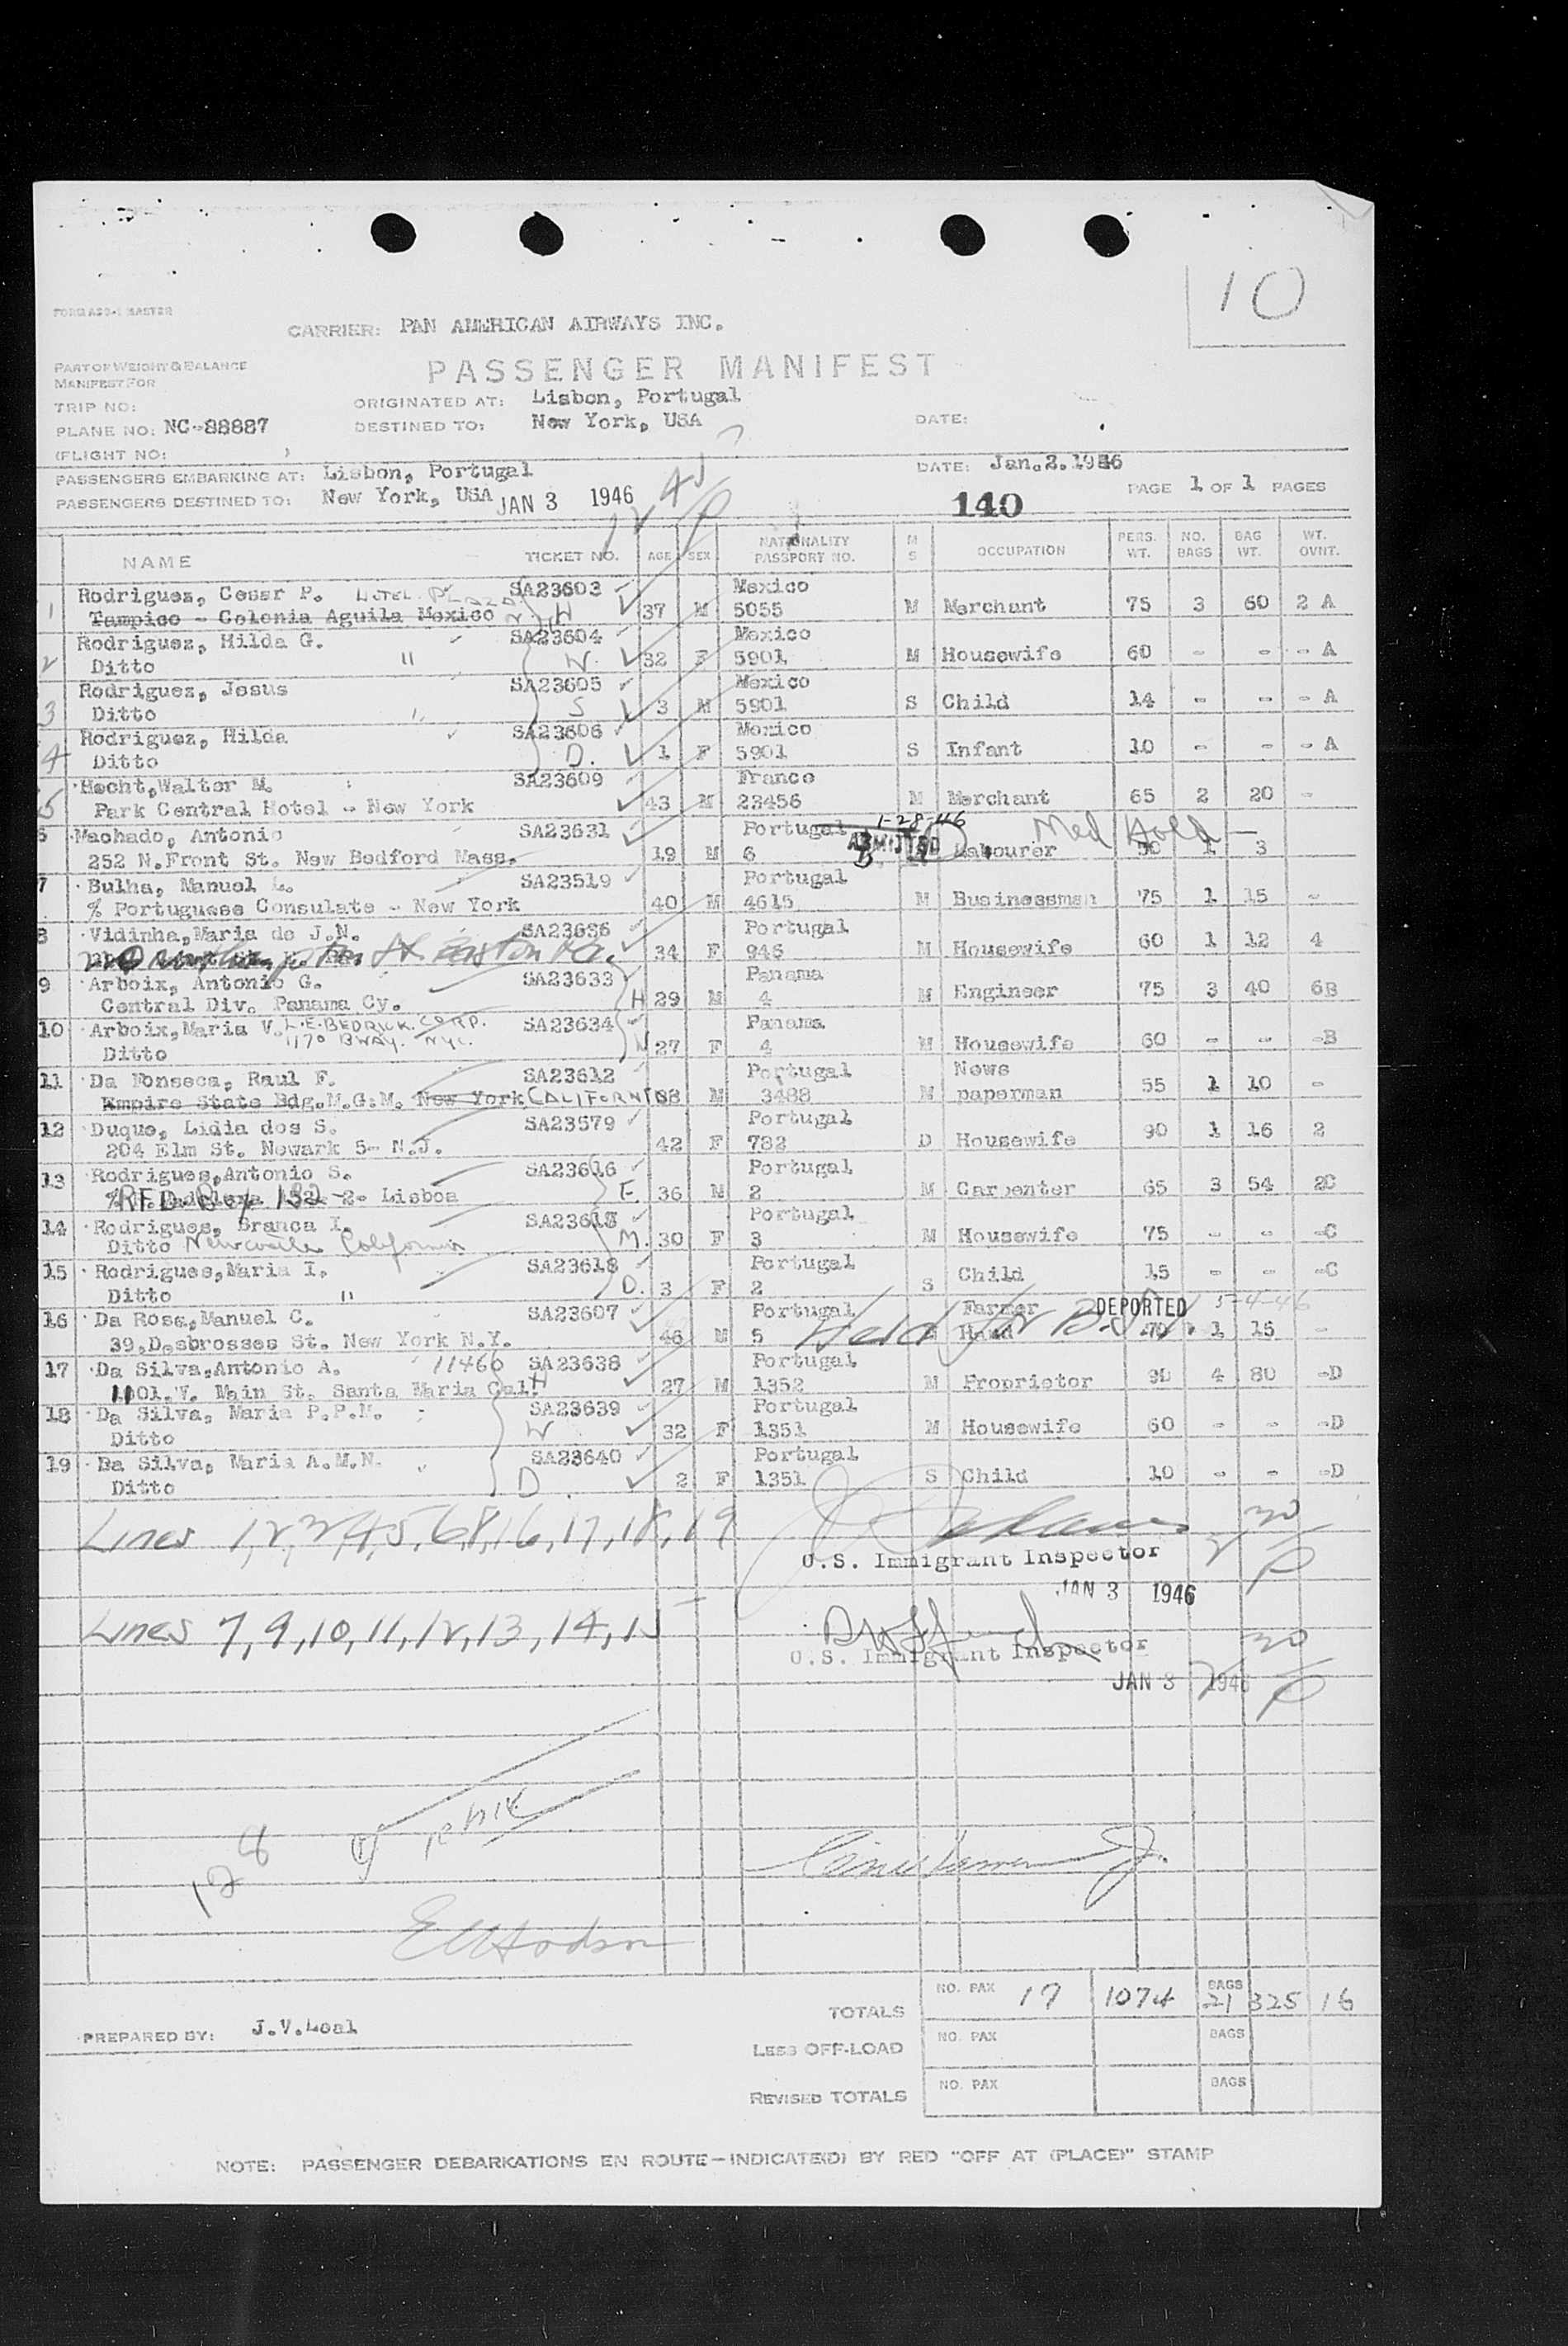 10
FORM ASO-1 MASTER
CARRIER: PAN AMERICAN AIRWAYS INC.
PART OF WEIGHT & BALANCE
MANIFEST FOR
PASSENGER MANIFEST
TRIP NO:
ORIGINATED AT: Lisbon, Portugal
PLANE NO: NC-88887
DESTINED TO: New York, USA
DATE:
(FLIGHT NO: )
PASSENGERS EMBARKING AT: Lisbon, Portugal
DATE: Jan.2.1946
PASSENGERS DESTINED TO: New York, USA JAN 3 1946
140
PAGE 1 OF 1 PAGES
NAME TICKET NO. AGE SEX NATIONALITY PASSPORT NO. M S OCCUPATION PERS. WT. NO. BAGS BAG WT. WT. OVNT.
1 Rodriguez, Cesar P. HOTEL PLAZA SA23603 Mexico
Tampico - Colonia Aguila Mexico H 37 M 5055 M Merchant 75 3 60 2 A
2 Rodriguez, Hilda G. SA23604 Mexico
Ditto " W. 32 F 5901 M Housewife 60 - - - A
3 Rodriguez, Jesus SA23605 Mexico
Ditto " S 3 M 5901 S Child 14 - - - A
4 Rodriguez, Hilda SA23606 Mexico
Ditto D. 1 F 5901 S Infant 10 - - - A
5 Hecht, Walter M. SA23609 France
Park Central Hotel - New York 43 M 23456 M Merchant 65 2 20 -
6 Machado, Antonio SA23631 Portugal 1-28-46 ADMITTED Med Hold
252 N.Front St. New Bedford Mass. 19 M 6 Labourer 1 3
7 Bulha, Manuel L. SA23519 Portugal
% Portuguese Consulate - New York 40 M 4615 M Businessman 75 1 15 -
8 Vidinha, Maria de J.N. SA23636 Portugal
St Easton Pa. 34 F 946 M Housewife 60 1 12 4
9 Arboix, Antonio G. SA23633 Panama
Central Div. Panama Cy. H 29 M 4 M Engineer 75 3 40 6B
10 Arboix, Maria V. L.E. BEDRICK CORP. SA23634 Panama
1170 BWAY. NYC.
Ditto W 27 F 4 M Housewife 60 - - -B
11 Da Fonseca, Raul F. SA23612 Portugal News
Empire State Bdg.M.G.M. New York CALIFORNIA 38 M 3488 M paperman 55 1 10 -
12 Duque, Lidia dos S. SA23579 Portugal
204 Elm St. Newark 5- N.J. 42 F 782 D Housewife 90 1 16 2
13 Rodrigues, Antonio S. SA23616 Portugal
RFD. Box 132 2. Lisboa F. 36 M 2 M Carpenter 65 3 54 2C
14 Rodrigues, Branca I. SA23617 Portugal
Ditto Newcastle California M. 30 F 3 M Housewife 75 - - -C
15 Rodrigues, Maria I. SA23618 Portugal
Ditto " D. 3 F 2 S Child 15 - - -C
16 Da Rosa, Manuel C. SA23607 Portugal Farmer DEPORTED 5-4-46
39, Desbrosses St. New York N.Y. 46 M 5 Held for B.S.I. Hand 70 1 15 -
17 Da Silva, Antonio A. 11460 SA23638 Portugal
1101.W. Main St. Santa Maria Cal. H 27 M 1352 M Proprietor 90 4 80 -D
18 Da Silva, Maria P.P.N. SA23639 Portugal
Ditto W 32 F 1351 M Housewife 60 - - -D
19 Da Silva, Maria A.M.N. SA23640 Portugal
Ditto D. 2 F 1351 S Child 10 - - -D
Lines 1,2,3,4,5,6,8,16,17,18,19
U.S. Immigrant Inspector
JAN 3 1946
Lines 7,9,10,11,12,13,14,15
U.S. Immigrant Inspector
JAN 3 1946
E W Hodson
TOTALS NO. PAX 17 1074 BAGS 21 325 16
PREPARED BY: J.V.Leal
LESS OFF-LOAD NO. PAX BAGS
REVISED TOTALS NO. PAX BAGS
NOTE: PASSENGER DEBARKATIONS EN ROUTE-INDICATE(D) BY RED "OFF AT (PLACE)" STAMP